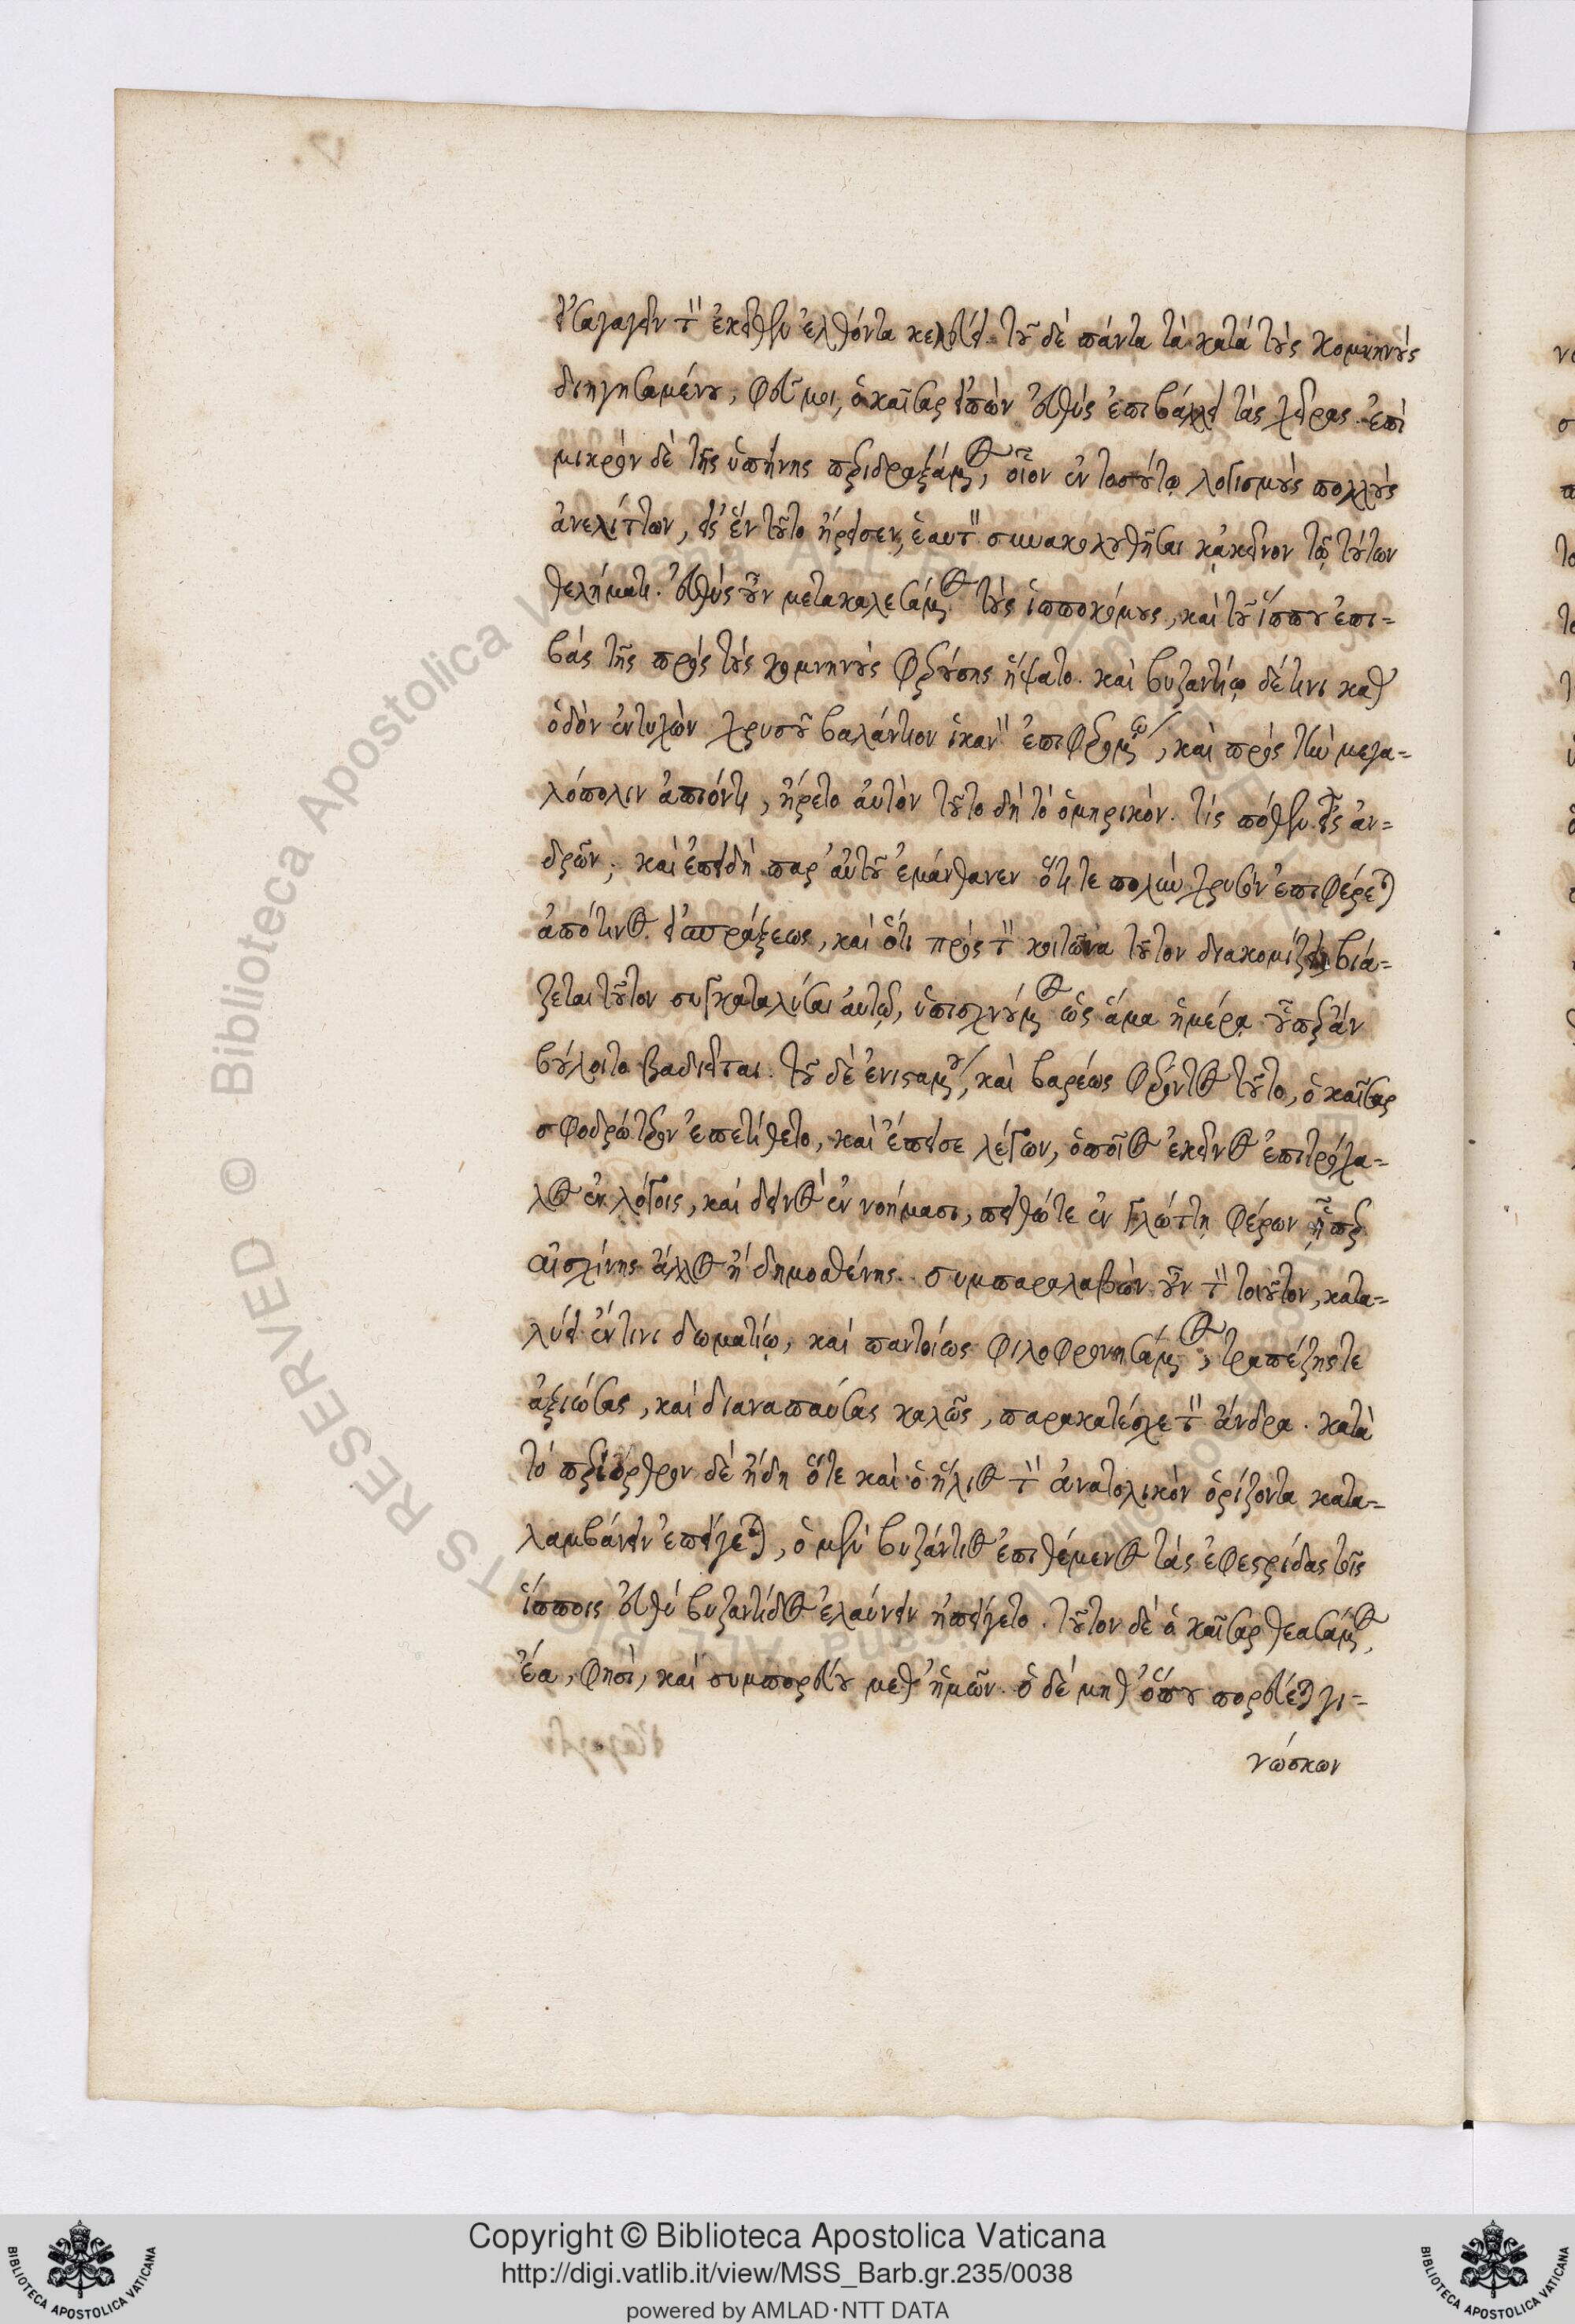 εἰσαγαγεῖν τὸν ἐκεῖθεν ἐλθόντα κελεύει. τοῦ δὲ πάντα τὰ κατὰ τοὺς κομνηνοὺς
διηγησαμένου, φεῦ μοι, ὁ καῖσαρ εἰπὼν εὐθὺς ἐπιβάλλει τὰς χεῖρας. ἐπὶ
μικρὸν δὲ τῆς ὑπήνης περιδραξάμενος, οἷον ἐν τοσούτῳ λογισμοὺς πολλοὺς
ἀνελίττων, εἰς ἓν τοῦτο ἤρεισεν, ἑαυτὸν συνακολουθῆσαι κἀκεῖνον τῷ τούτων
θελήματι. εὐθὺς οὖν μετακαλεσάμενος τοὺς ἱπποκόμους, καὶ τοῦ ἵππου ἐπι=
βὰς τῆς πρὸς τοὺς κομνηνοὺς φερούσης ἥψατο. καὶ βυζαντίῳ δέ τινι καθ'
ὁδὸν ἐντυχὼν χρυσοῦ βαλάντιον ἱκανὸν ἐπιφερομένῳ, καὶ πρὸς τὴν μεγα=
λόπολιν ἀπιόντι, ἤρετο αὐτὸν τοῦτο δὴ τὸ ὁμηρικόν. τίς πόθεν εἶς ἀν=
δρῶν; καὶ ἐπειδὴ παρ' αὐτοῦ ἐμάνθανεν ὅτι τε πολὺν χρυσὸν ἐπιφέρεται
ἀπό τινος εἰσπράξεως, καὶ ὅτι πρὸς τὸν κοιτῶνα τοῦτον διακομίζει, βιά=
ζεται τοῦτον συγκαταλῦσαι αὐτῷ, ὑπισχνούμενος ὡς ἅμα ἡμέρᾳ οὗπερ ἂν
βούλοιτο βαδιεῖται. τοῦ δὲ ἐνισταμένου, καὶ βαρέως φέροντος τοῦτο, ὁ καῖσαρ
σφοδρότερον ἐπετίθετο, καὶ ἔπεισε λέγων, ὁποῖος ἐκεῖνος ἐπιτρόχα=
λος ἐν λόγοις, καὶ δεινὸς ἐν νοήμασι, πειθώ τε ἐν γλώττῃ φέρων ᾗπερ
αἰσχίνης ἄλλος ἢ δημοσθένης. συμπαραλαβὼν οὖν τὸν τοιοῦτον, κατα=
λύει ἔν τινι δωματίῳ, καὶ παντοίως φιλοφρονησάμενος, τραπέζης τε
ἀξιώσας, καὶ διαναπαύσας καλῶς, παρακατέσχε τὸν ἄνδρα. κατὰ
τὸ περίορθρον δὲ ἤδη ὅτε καὶ ὁ ἥλιος τὸν ἀνατολικὸν ὁρίζοντα κατα=
λαμβάνειν ἐπείγεται, ὁ μὲν βυζάντιος ἐπιθέμενος τὰς ἐφεστρίδας τοῖς
ἵπποις εὐθὺ βυζαντίδος ἐλαύνειν ἠπείγετο. τοῦτον δὲ ὁ καῖσαρ θεασάμενος,
ἔα, φησὶ, καὶ συμπορεύου μεθ' ἡμῶν. ὁ δὲ μηθ' ὅπου πορεύεται γι=
νώσκων
Copyright © Biblioteca Apostolica Vaticana
http://digi.vatlib.it/view/MSS_Barb.gr.235/0038
powered by AMLAD·NTT DATA